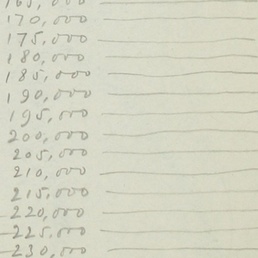 165,000
170,000
175,000
180,000
185,000
190,000
195,000
200,000
205,000
210,000
215,000
220,000
225,000
230,000